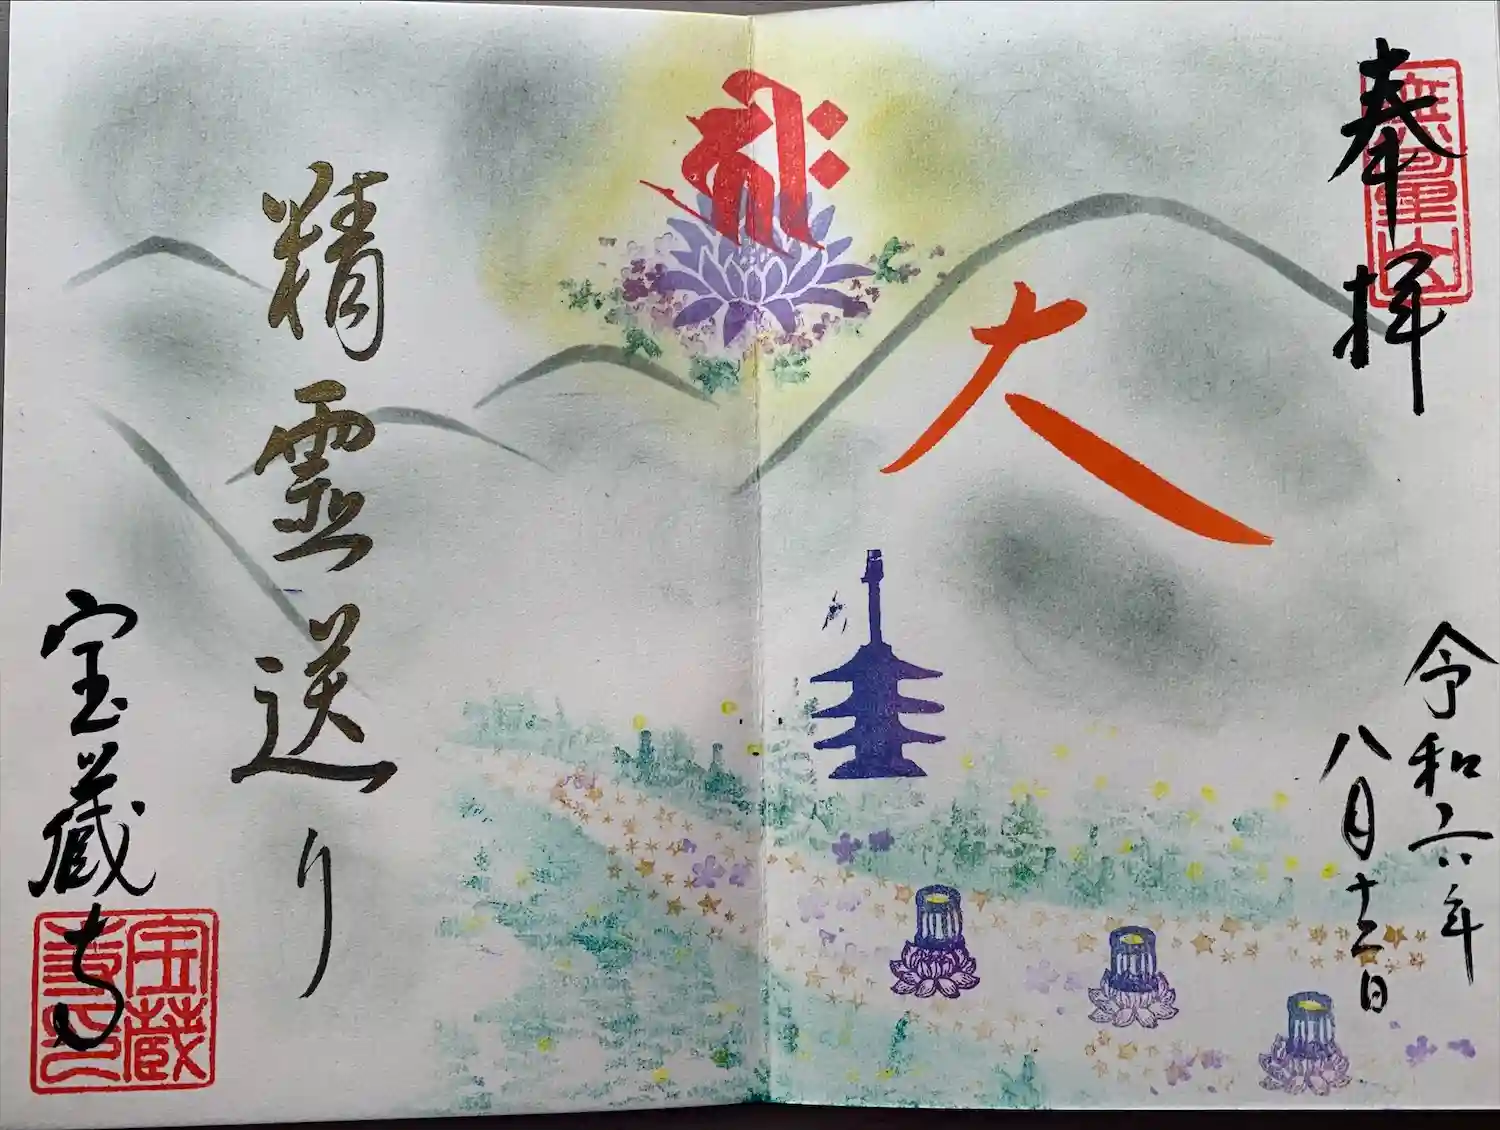 奉拝
無量山
令和六年
八月十三日
大
ह्रीः
精霊送り
宝蔵寺
宝蔵寺印